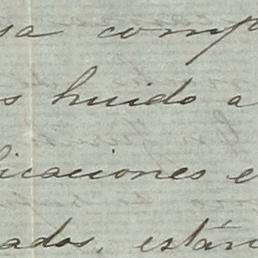 sa comp
s huido a
licaciones e
ados, están